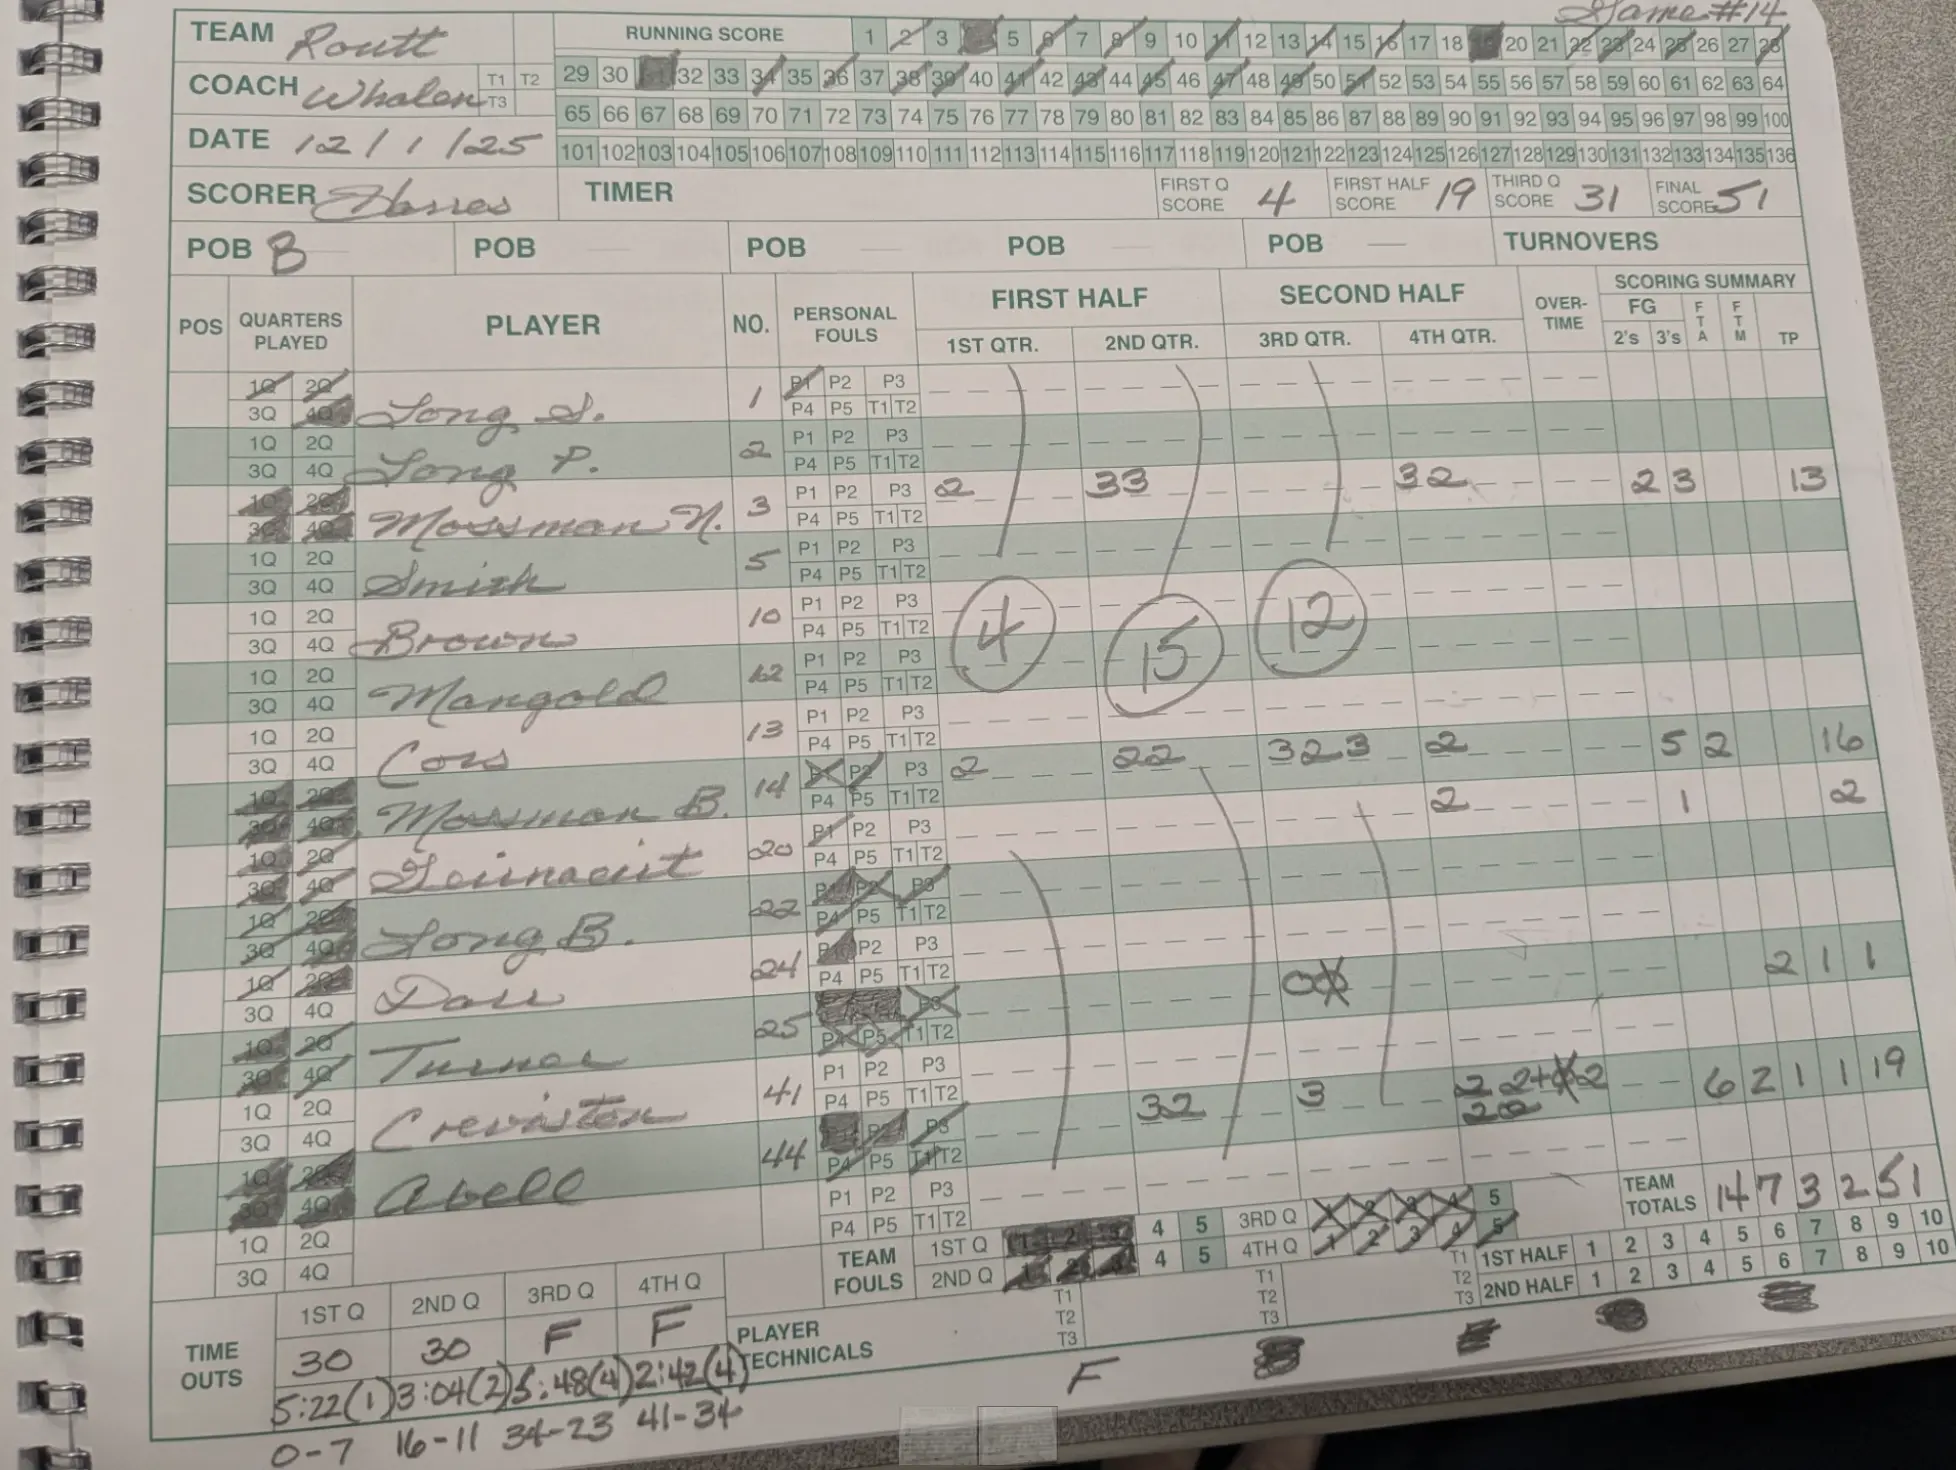 Game #14
TEAM Routt RUNNING SCORE 1 2 3 5 6 7 8 9 10 11 12 13 14 15 16 17 18 20 21 22 23 24 25 26 27 28
29 30 31 32 33 34 35 36 37 38 39 40 41 42 43 44 45 46 47 48 49 50 51 52 53 54 55 56 57 58 59 60 61 62 63 64
COACH Whalen T1 T2 T3
65 66 67 68 69 70 71 72 73 74 75 76 77 78 79 80 81 82 83 84 85 86 87 88 89 90 91 92 93 94 95 96 97 98 99 100
DATE 12/1/25
101 102 103 104 105 106 107 108 109 110 111 112 113 114 115 116 117 118 119 120 121 122 123 124 125 126 127 128 129 130 131 132 133 134 135 136
SCORER TIMER FIRST Q SCORE 4 FIRST HALF SCORE 19 THIRD Q SCORE 31 FINAL SCORE 51
POB B POB POB POB POB TURNOVERS
POS QUARTERS PLAYED PLAYER NO. PERSONAL FOULS FIRST HALF SECOND HALF OVER-TIME SCORING SUMMARY
1ST QTR. 2ND QTR. 3RD QTR. 4TH QTR. FG 2's 3's FTA FTM TP
1Q 2Q 3Q 4Q Long S. 1 P1 P2 P3 P4 P5 T1 T2
1Q 2Q 3Q 4Q Long P. 2 P1 P2 P3 P4 P5 T1 T2
1Q 2Q 3Q 4Q Mossman N. 3 P1 P2 P3 P4 P5 T1 T2 2 33 32 2 3 13
1Q 2Q 3Q 4Q Smith 5 P1 P2 P3 P4 P5 T1 T2
1Q 2Q 3Q 4Q Brown 10 P1 P2 P3 P4 P5 T1 T2
4 15 12
1Q 2Q 3Q 4Q Mangold 12 P1 P2 P3 P4 P5 T1 T2
1Q 2Q 3Q 4Q Cors 13 P1 P2 P3 P4 P5 T1 T2
1Q 2Q 3Q 4Q Mossman B. 14 P1 P2 P3 P4 P5 T1 T2 2 22 323 2 5 2 16
1Q 2Q 3Q 4Q 20 P1 P2 P3 P4 P5 T1 T2 2 1 2
1Q 2Q 3Q 4Q Long B. 22 P1 P2 P3 P4 P5 T1 T2
1Q 2Q 3Q 4Q 24 P2 P3 P4 P5 T1 T2
1Q 2Q 3Q 4Q Turner 25 P3 P4 P5 T1 T2 2 1 1
1Q 2Q 3Q 4Q Creviston 41 P1 P2 P3 P4 P5 T1 T2
1Q 2Q 3Q 4Q Abell 44 P2 P3 P4 P5 T1 T2 32 3 6 2 1 1 19
1Q 2Q 3Q 4Q P1 P2 P3 P4 P5 T1 T2
TEAM TOTALS 14 7 3 2 51
TEAM FOULS 1ST Q 1 2 3 4 5 3RD Q 1 2 3 4 5
2ND Q 1 2 3 4 5 4TH Q 1 2 3 4 5
1ST HALF 1 2 3 4 5 6 7 8 9 10
2ND HALF 1 2 3 4 5 6 7 8 9 10
TIME OUTS 1ST Q 2ND Q 3RD Q 4TH Q
30 30 F F
PLAYER TECHNICALS T1 T2 T3 T1 T2 T3 T1 T2 T3
5:22(1) 3:04(2) 5:48(4) 2:42(4)
F
0-7 16-11 34-23 41-34